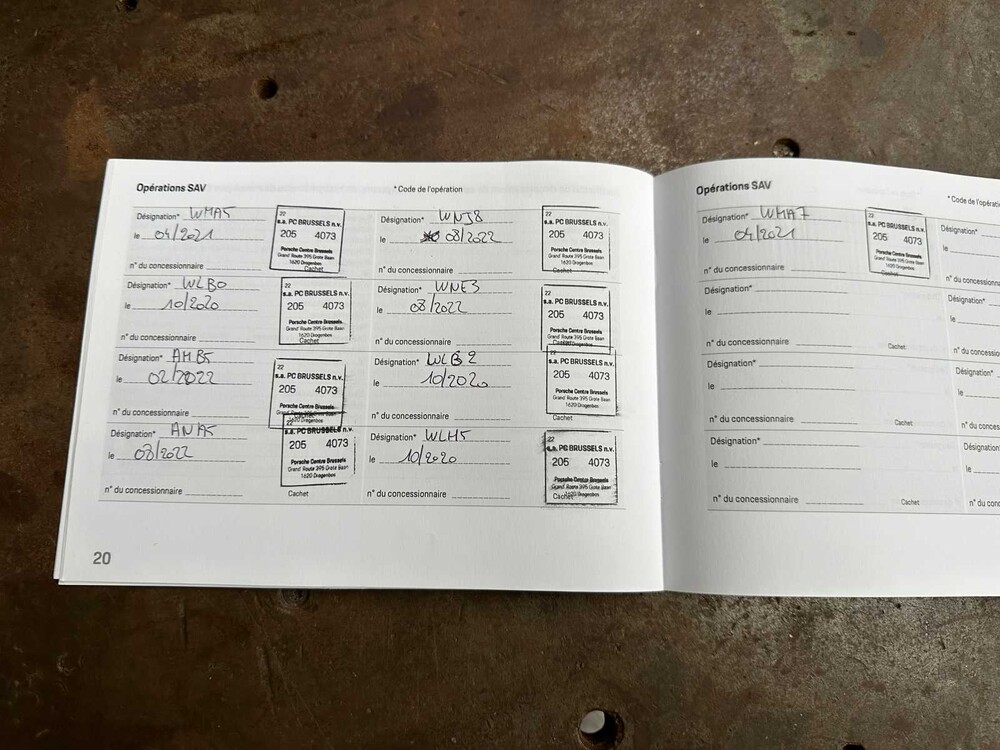 Opérations SAV
* Code de l'opération
Désignation* WMA5
le 04/2021
n° du concessionnaire
22
s.a. PC BRUSSELS n.v.
205 4073
Porsche Centre Brussels
Grand' Route 395 Grote Baan
1620 Drogenbos
Cachet
Désignation* WNJ8
le 08/2022
n° du concessionnaire
22
s.a. PC BRUSSELS n.v.
205 4073
Porsche Centre Brussels
Grand' Route 395 Grote Baan
1620 Drogenbos
Cachet
Désignation* WLB0
le 10/2020
n° du concessionnaire
22
s.a. PC BRUSSELS n.v.
205 4073
Porsche Centre Brussels
Grand' Route 395 Grote Baan
1620 Drogenbos
Cachet
Désignation* WNE3
le 08/2022
n° du concessionnaire
22
s.a. PC BRUSSELS n.v.
205 4073
Porsche Centre Brussels
Grand' Route 395 Grote Baan
1620 Drogenbos
Cachet
Désignation* AMB5
le 02/2022
n° du concessionnaire
22
s.a. PC BRUSSELS n.v.
205 4073
Porsche Centre Brussels
Grand' Route 395 Grote Baan
1620 Drogenbos
Cachet
Désignation* WLB2
le 10/2020
n° du concessionnaire
22
s.a. PC BRUSSELS n.v.
205 4073
Porsche Centre Brussels
Grand' Route 395 Grote Baan
1620 Drogenbos
Cachet
Désignation* ANA5
le 08/2022
n° du concessionnaire
22
s.a. PC BRUSSELS n.v.
205 4073
Porsche Centre Brussels
Grand' Route 395 Grote Baan
1620 Drogenbos
Cachet
Désignation* WLH5
le 10/2020
n° du concessionnaire
22
s.a. PC BRUSSELS n.v.
205 4073
Porsche Centre Brussels
Grand' Route 395 Grote Baan
1620 Drogenbos
Cachet
20
Opérations SAV
* Code de l'opérati
Désignation* WMA7
le 04/2021
n° du concessionnaire
22
s.a. PC BRUSSELS n.v.
205 4073
Porsche Centre Brussels
Grand' Route 395 Grote Baan
1620 Drogenbos
Cachet
Désignation*
le
n° du conce
Désignation*
le
n° du concessionnaire
Cachet
Désignation*
le
n° du concess
Désignation*
le
n° du concessionnaire
Cachet
Désignation*
le
n° du conces
Désignation*
le
n° du concessionnaire
Cachet
Désignation
le
n° du conc